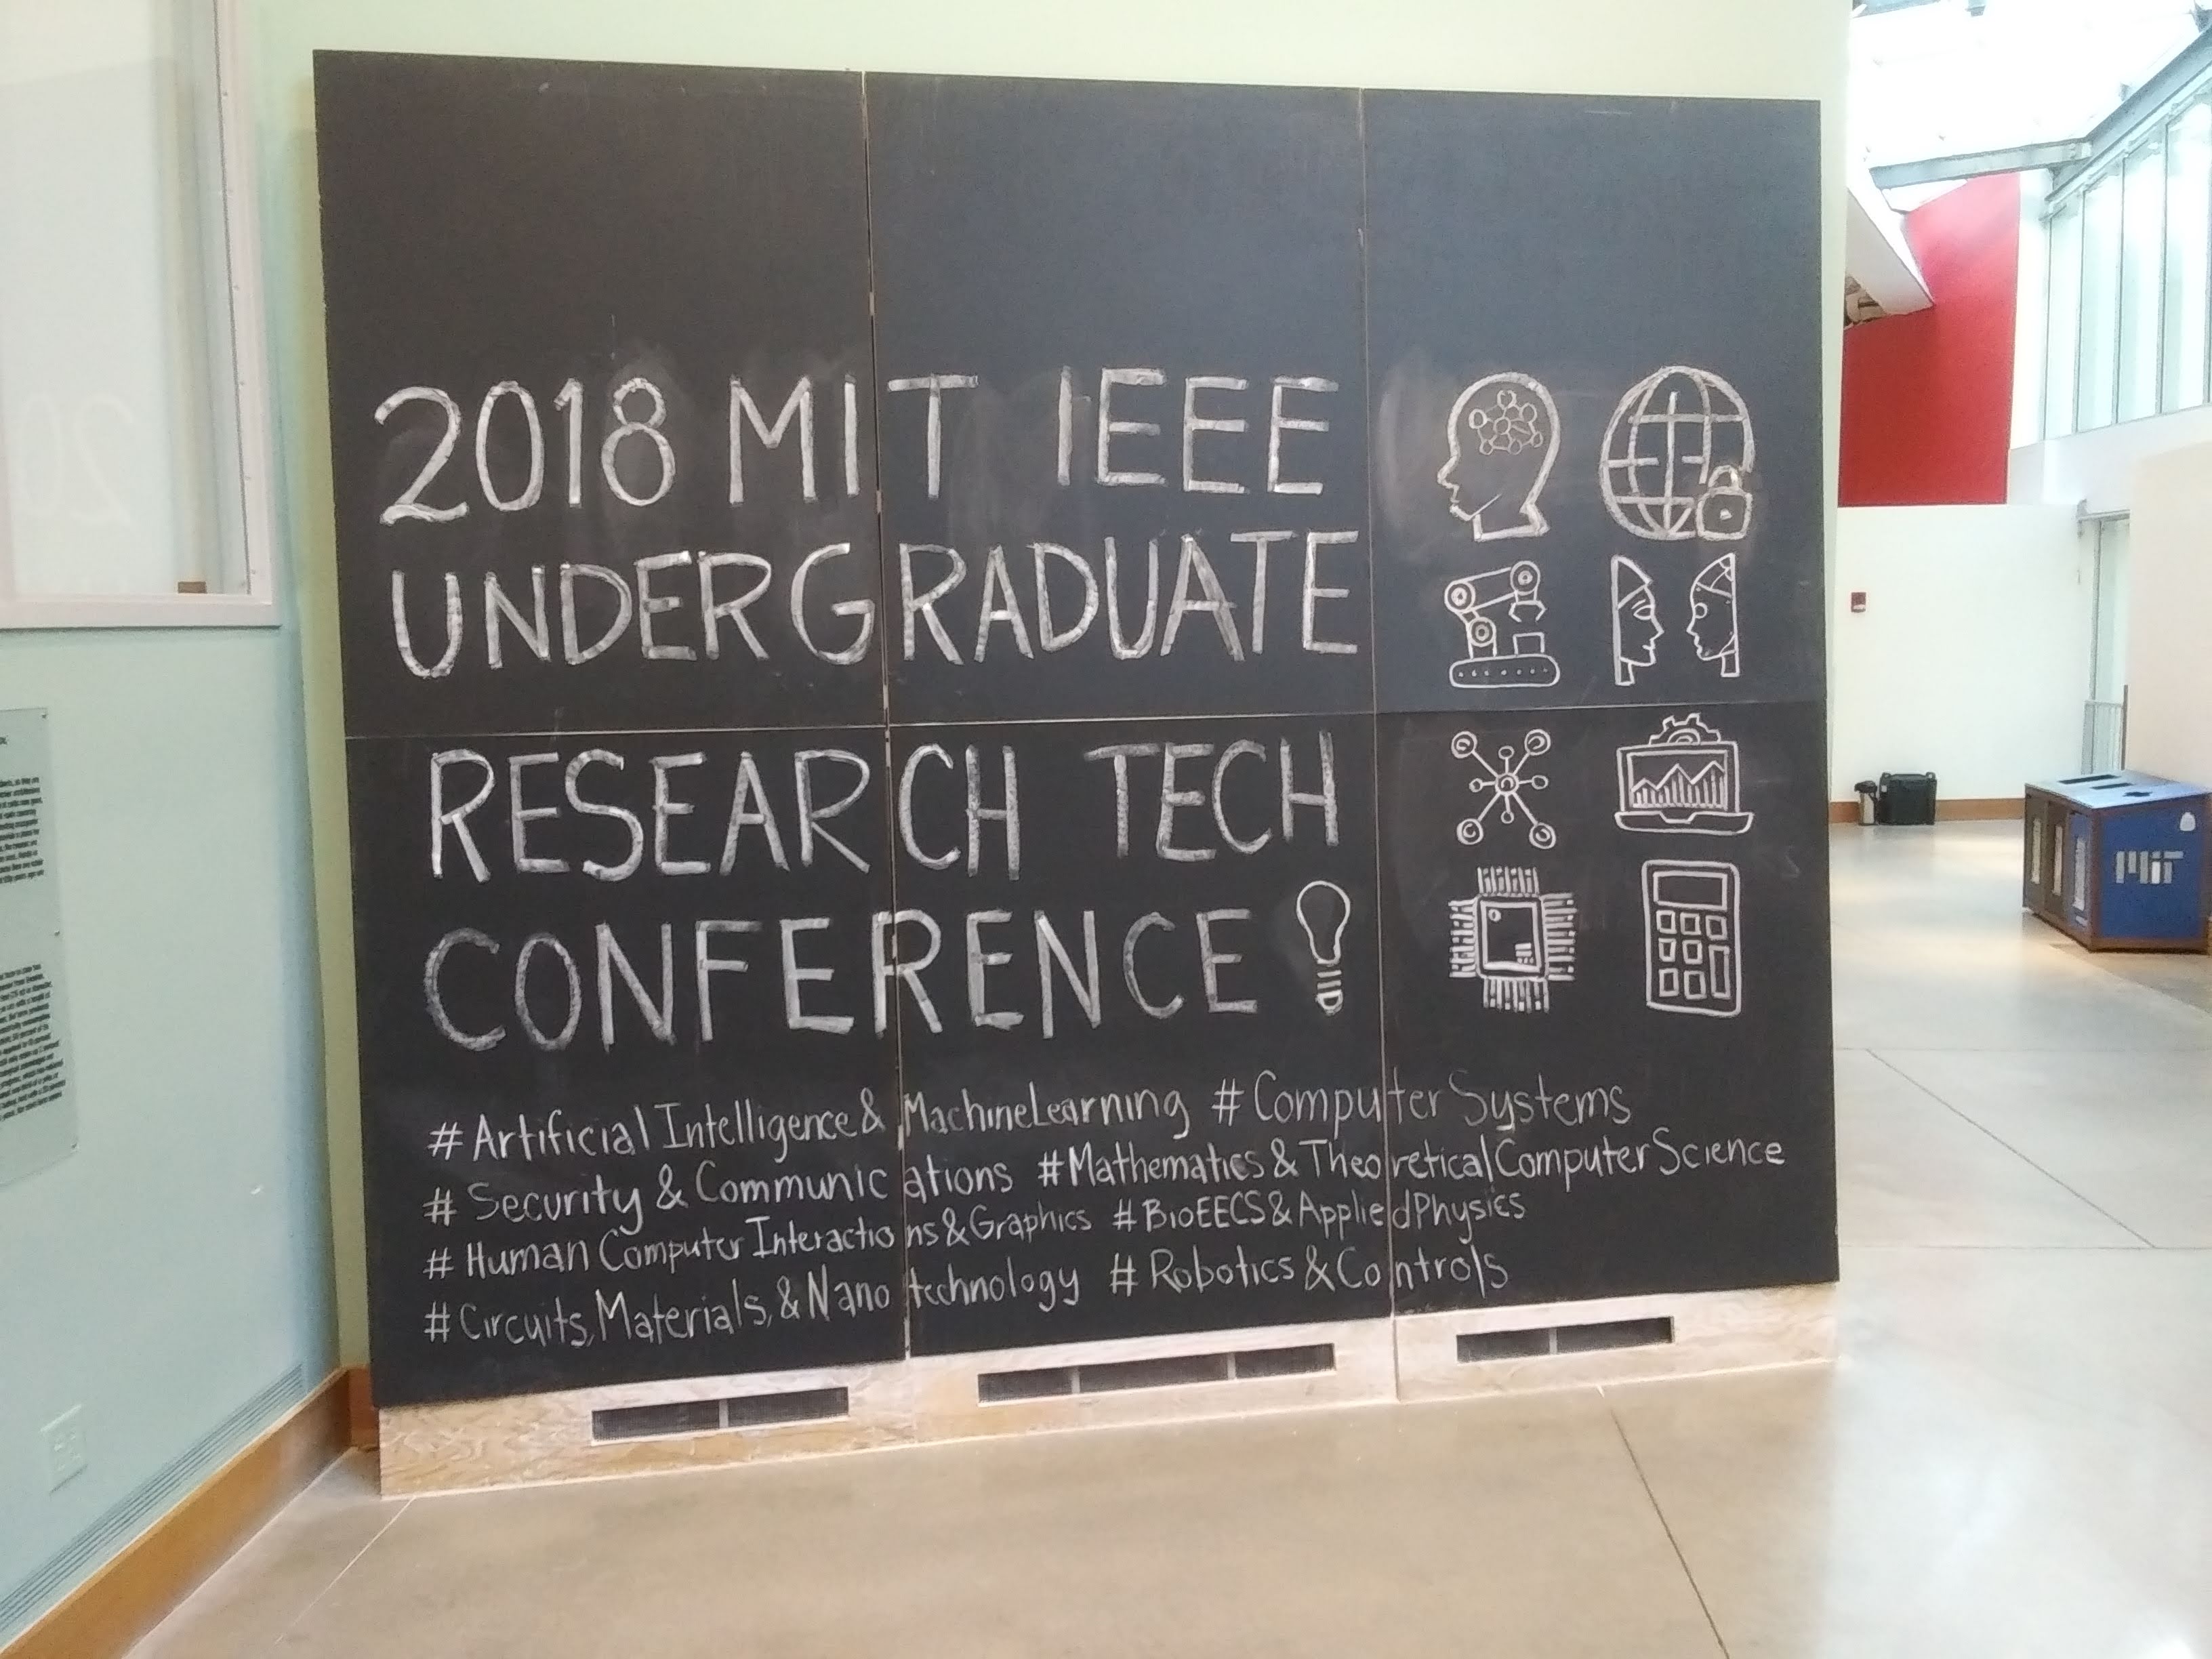 2018 MIT IEEE
UNDERGRADUATE
RESEARCH TECH
CONFERENCE
#Artificial Intelligence & MachineLearning #Computer Systems
#Security & Communications #Mathematics & TheoreticalComputerScience
#Human Computer Interactions & Graphics #BioEECS & AppliedPhysics
#Circuits, Materials, & Nanotechnology #Robotics & Controls
MIT